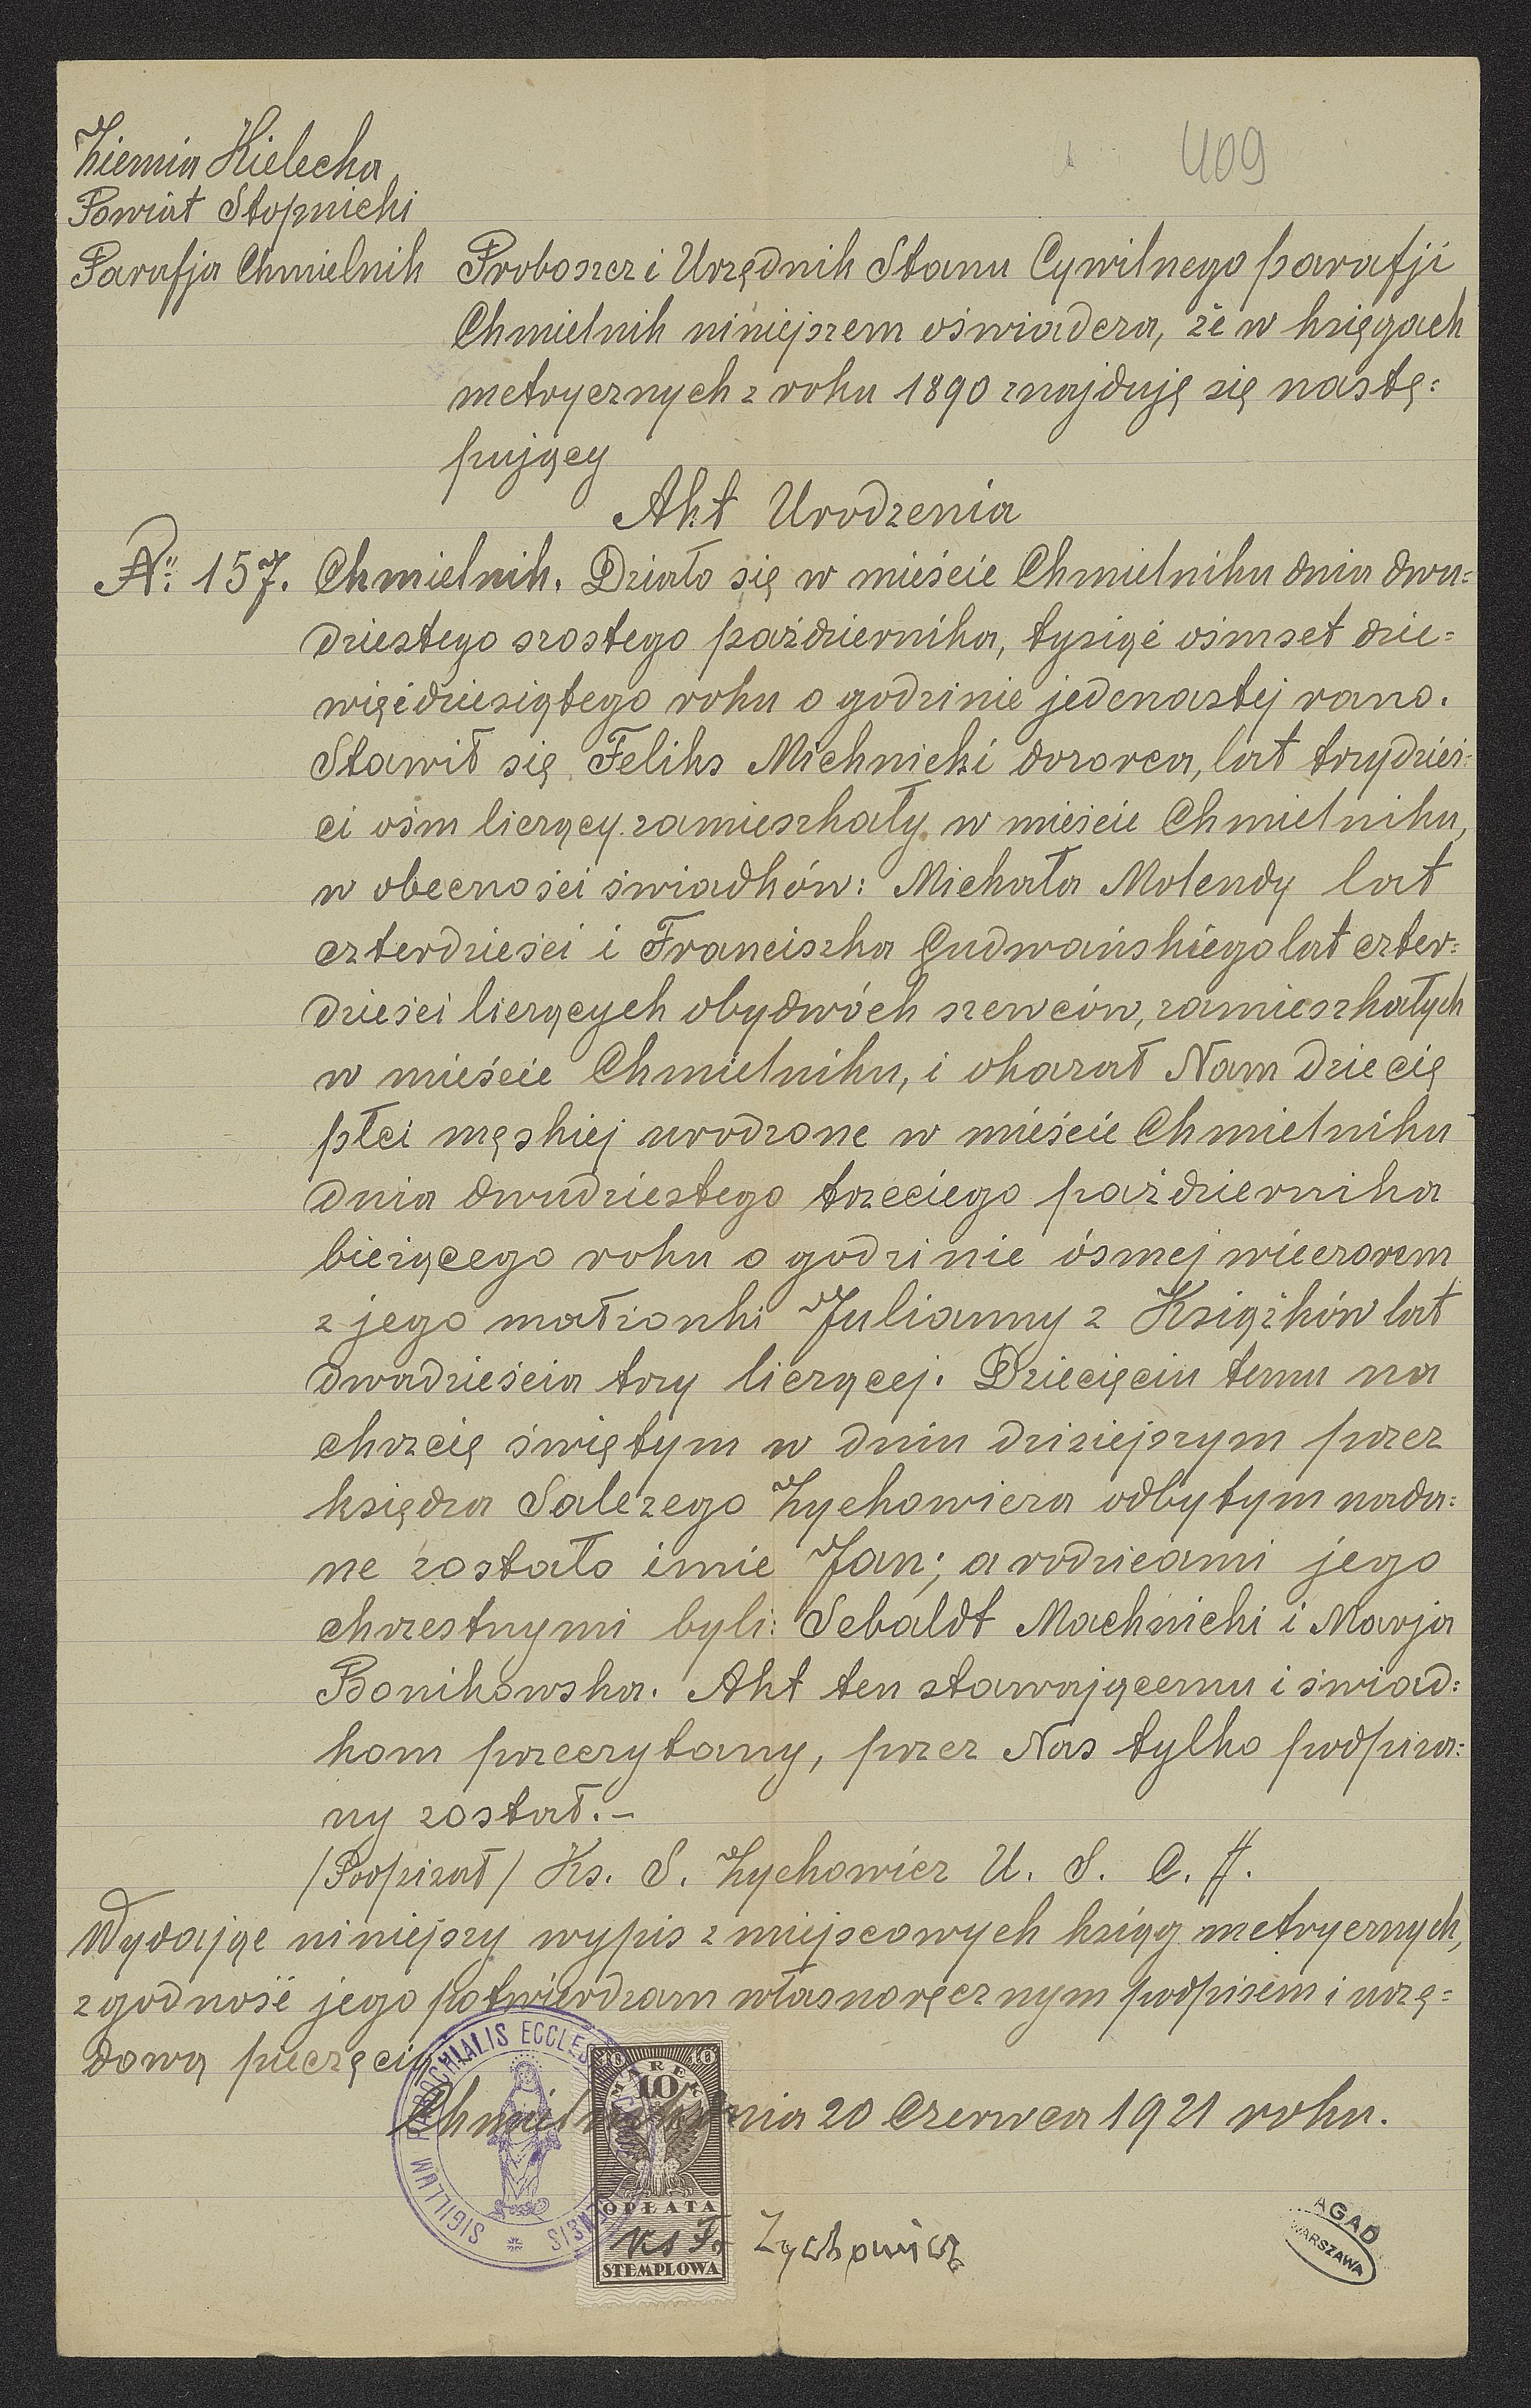 Ziemia Kielecka
409
Powiat Stopnicki
Parafja Chmielnik Proboszcz i Urzędnik Stanu Cywilnego parafji
Chmielnik niniejszem oświadcza, że w księgach
metrycznych z roku 1890 znajduję się nastę=
pujący
Akt Urodzenia
№ 157. Chmielnik. Działo się w mieście Chmielniku dnia dwu=
dziestego szostego paździerника, tysiąć ośmset dzie=
więćdziesiątego roku o godzinie jedenastej rano.
Stawił się Feliks Michnicki dozorca, lat trzydzieś=
ci ośm liczący zamieszkały w mieście Chmielniku,
w obecności świadków: Michała Molendy lat
czterdzieści i Franciszka Gudwańskiego lat czter=
dzieści liczących obydwóch szewców, zamieszkałych
w mieście Chmielniku, i okazał Nam dziecię
płci męskiej urodzone w mieście Chmielniku
dnia dwudziestego trzeciego października
bieżącego roku o godzinie ósmej wieczorem
z jego małżonki Julianny z Książków lat
dwadzieścia trzy liczącej. Dziecięciu temu na
chrzcię świętym w dniu dzisiejszym przez
księdza Salezego Zychowicza odbytym nada=
ne zostało imie Jan; a rodzicami jego
chrzestnymi byli: Sebaldt Machnicki i Marja
Bonikowska. Akt ten stawającemu i świad=
kom przeczytany, przez Nas tylko podpisa=
ny został.-
/Podpisał/ Ks. S. Zychowicz U. S. C.
Wydając niniejszy wypis z miejscowych ksiąg metrycznych,
zgodność jego potwierdzam własnoręcznym podpisem i urzę=
dową pieczęcią
Chmielnik dnia 20 Czerwca 1921 roku.
SIGILLUM PAROCHIALIS ECCLES
10 10
MAREK
10
OPŁATA
STEMPLOWA
Ks F. Zychowicz
AGAD
WARSZAWA